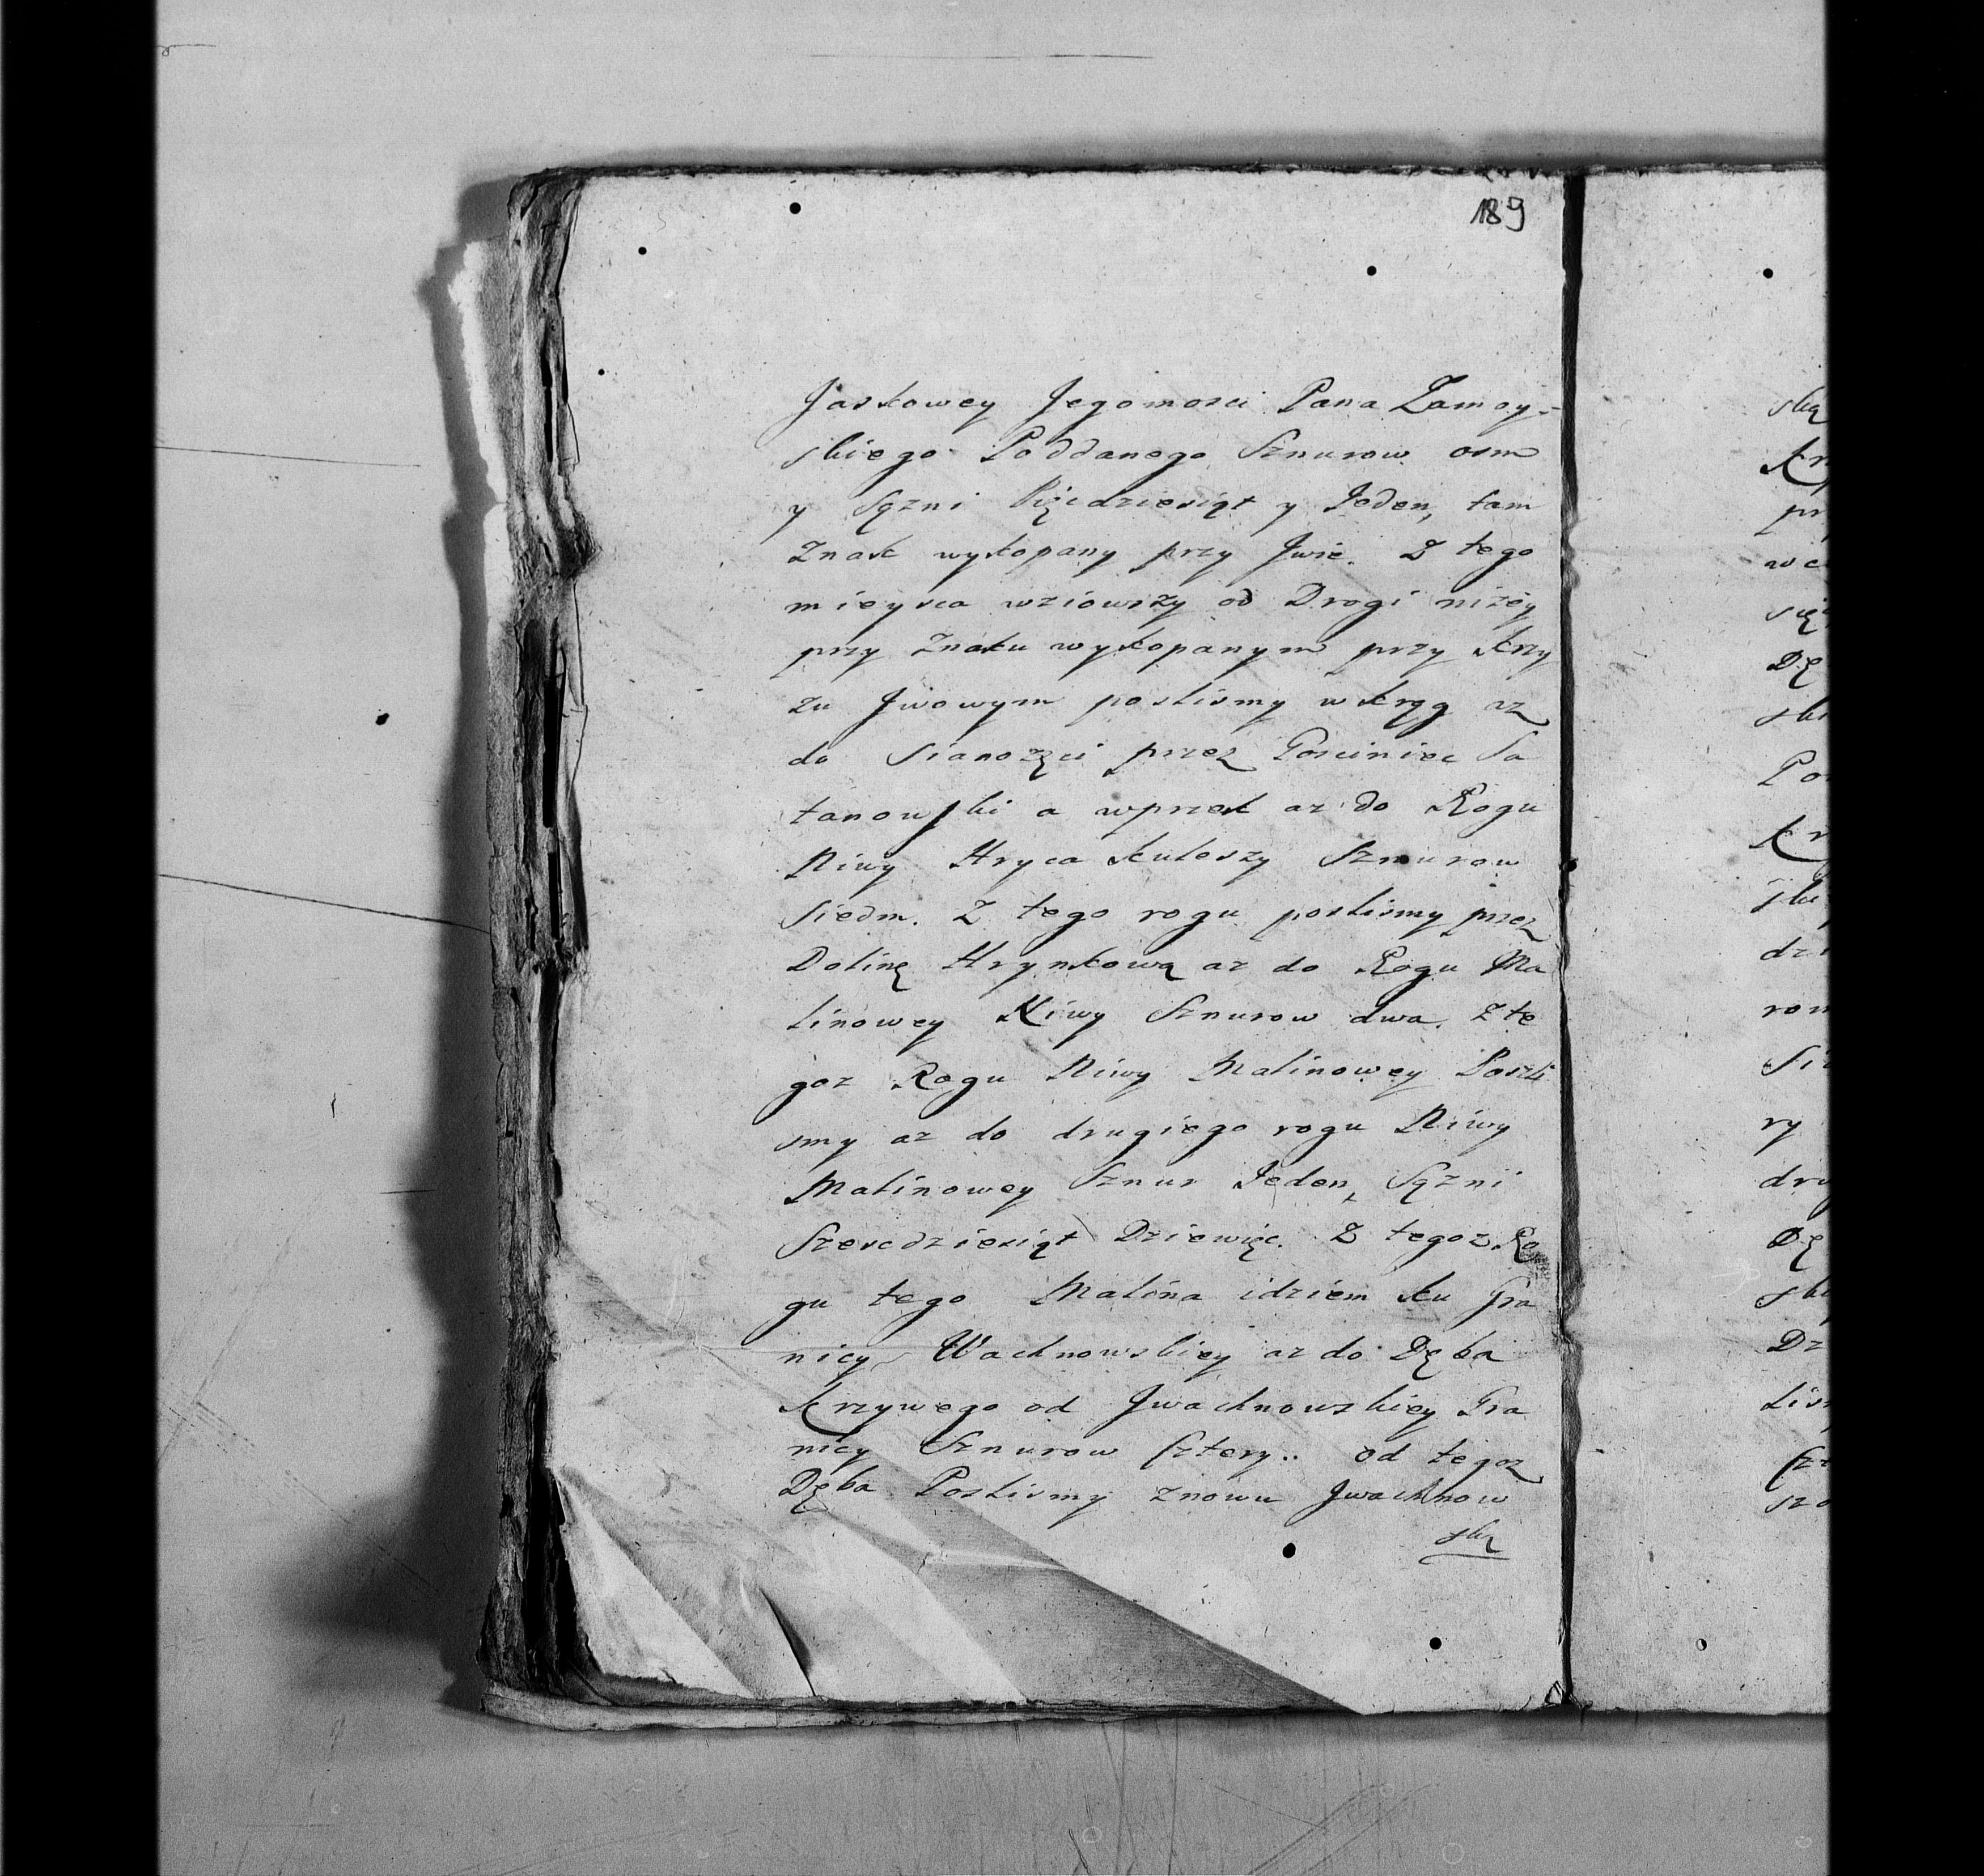 189
Jaskowey Jegomosci Pana Zamoy-
skiego Poddanego Sznurow osm
y Sążni Pięcdziesiąt y Jeden, tam
Znak wykopany przy Jwie. Z tego
mieysca wziowszy od Drogi niżey
przy Znaku wykopanym przy Krzy
zu Jwowym poslismy wkrąg az
do Sianozęci przez Gosciniec Sa
tanowski a wprzek az do Rogu
Niwy Hryca Kuleszy Sznurow
Siedm. Z tego rogu poslismy przez
Dolinę Hrynkową az do Rogu Ma
linowey Niwy Sznurow dwa. Z te
goz Rogu Niwy Malinowey Poszli
smy az do drugiego rogu Niwy
Malinowey Sznur Jeden, Sążni
Szescdziesiąt Dziewięc. Z tegoz Ro
gu tego Malina idziem ku Gra
nicy Wachnowskiey az do Dęba
Krzywego od Jwachnowskiey Gra
nicy Sznurow Cztery.. od tegoz
Dęba Poslismy znowu Jwachnow
ską
ską
Kr
pr
we
się
Dę
ski
Po
Kr
sku
dzi
rom
Si
ry
dru
Dę
ski
Dz
Lis
Czt
szo